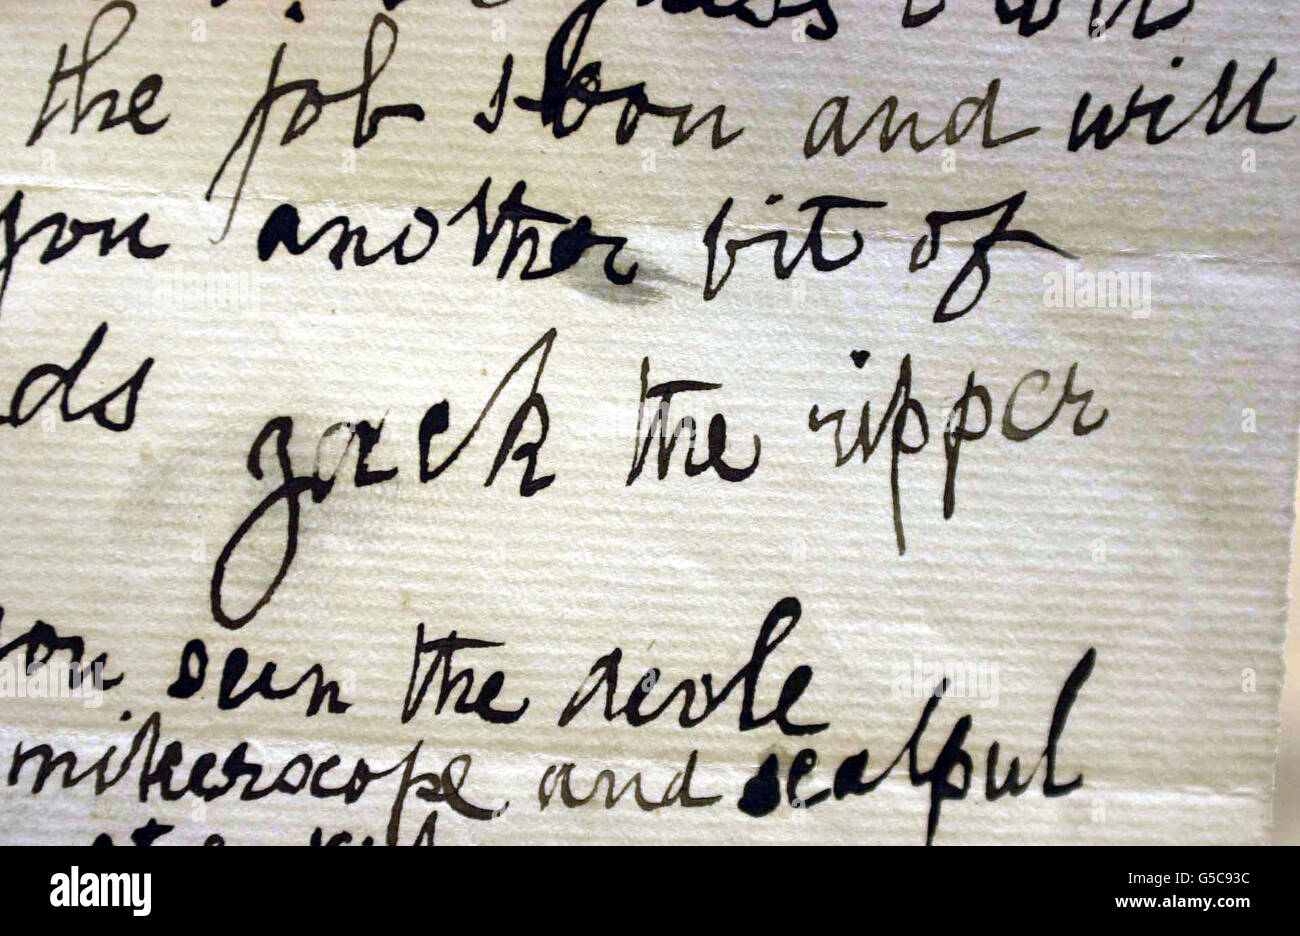 the job soon and will
you another bit of
ds
Jack the ripper
you seen the devle
mikerscope and scalpul
alamy
Image ID: G5C93C
www.alamy.com